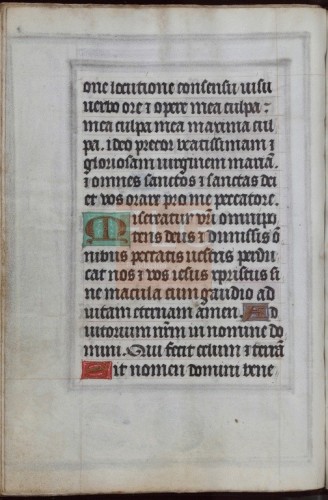 one locutione consensu uisu
uerbo ore ⁊ opere mea culpa :
mea culpa mea maxima cul
pa. Ideo precor beatissimam ⁊
gloriosam uirginem mariā.
⁊ omnes sanctos ⁊ sanctas dei
et vos orare pro me peccatore.
Misereatur vr̄i omnipo
tens deus ⁊ dimissis ō
nibus peccatis uestris perdu
cat nos ⁊ vos iesus xpristus si
ne macula cum gaudio ad
uitam eternam amen. Ad
iutorium nr̄m in nomine do
mini. Qui fecit celum ⁊ terrā
Sit nomen domini bene